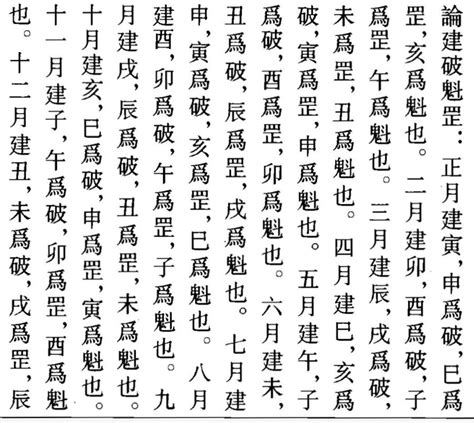 論建破魁罡：正月建寅，申爲破，巳爲
罡，亥爲魁也。二月建卯，酉爲破，子
爲罡，午爲魁也。三月建辰，戌爲破，
未爲罡，丑爲魁也。四月建巳，亥爲
破，寅爲罡，申爲魁也。五月建午，子
爲破，酉爲罡，卯爲魁也。六月建未，
丑爲破，辰爲罡，戌爲魁也。七月建
申，寅爲破，亥爲罡，巳爲魁也。八月
建酉，卯爲破，午爲罡，子爲魁也。九
月建戌，辰爲破，丑爲罡，未爲魁也。
十月建亥，巳爲破，申爲罡，寅爲魁也。
十一月建子，午爲破，卯爲罡，酉爲魁
也。十二月建丑，未爲破，戌爲罡，辰